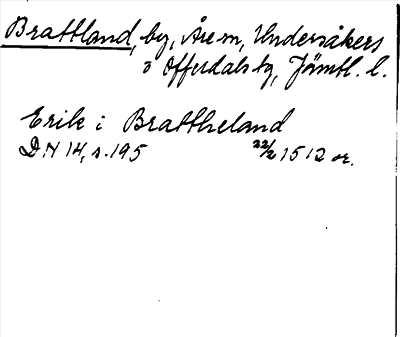 Brattland, by, Åre sn, Undersåkers
o Offerdals tg, Jämtl. l.
Erik i Brattheland
DN 14, s. 195 22/2 1512 or.